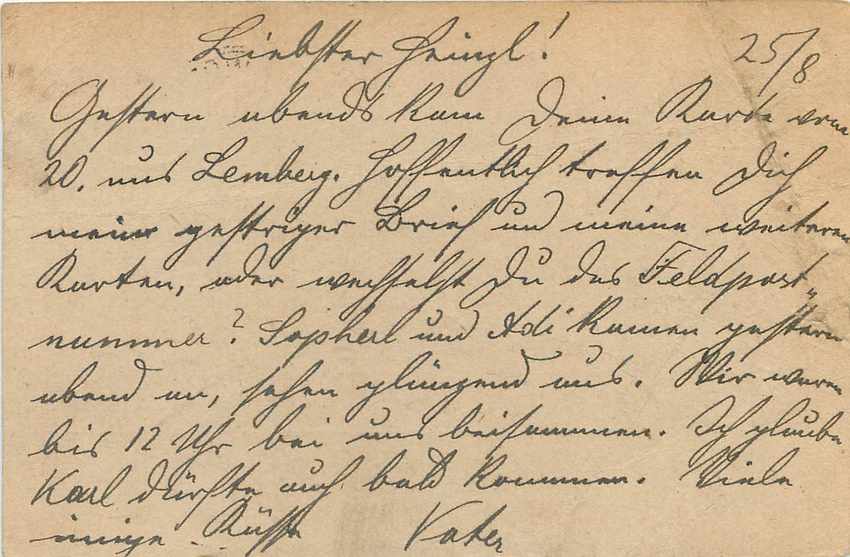 Liebster Heinzl! 25/8
Gestern abends kam Deine Karte vom
20. aus Lemberg. Hoffentlich treffen Dich
mein gestriger Brief und meine weiteren
Karten, oder wechselst Du das Feldpost„
nummer? Sopherl und Adi kamen gestern
abend an, sehen glänzend aus. Wir waren
bis 12 Uhr bei uns beisammen. Ich glaube
Karl dürfte auch bald kommen. Viele
innige Küsse Vater